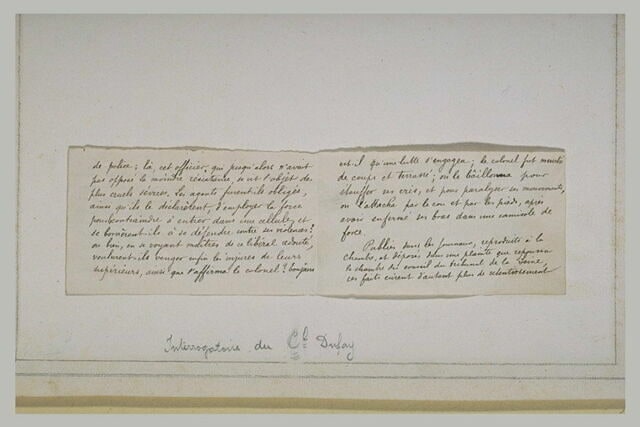 de police; là, cet officier, qui jusqu'alors n'avait
pas opposé la moindre résistance, se vit l'objet des
plus cruels sévices. Les agents furent-ils obligés,
ainsi qu'ils le déclarèrent, d'employer la force
pour contraindre à entrer dans une cellule, et
se bornèrent-ils à se défendre contre ses violences?
ou bien, en se voyant maîtres de ce libéral redouté,
voulurent-ils venger enfin les injures de leurs
supérieurs, ainsi que l'affirma le colonel? toujours
est-il qu'une lutte s'engagea; le colonel fut
de coups et terrassé; on le bâillonna pour
étouffer ses cris, et pour paralyser ses mouvements,
on l'attacha par le cou et par les pieds, après
avoir enfermé ses bras dans une camisole de
force.
Publiés dans les journaux, reproduits à la
chambre, et déposés dans une plainte que repoussa
la chambre du conseil du tribunal de la Seine,
ces faits eurent d'autant plus de retentissement
Interrogatoire du Cel Dufay